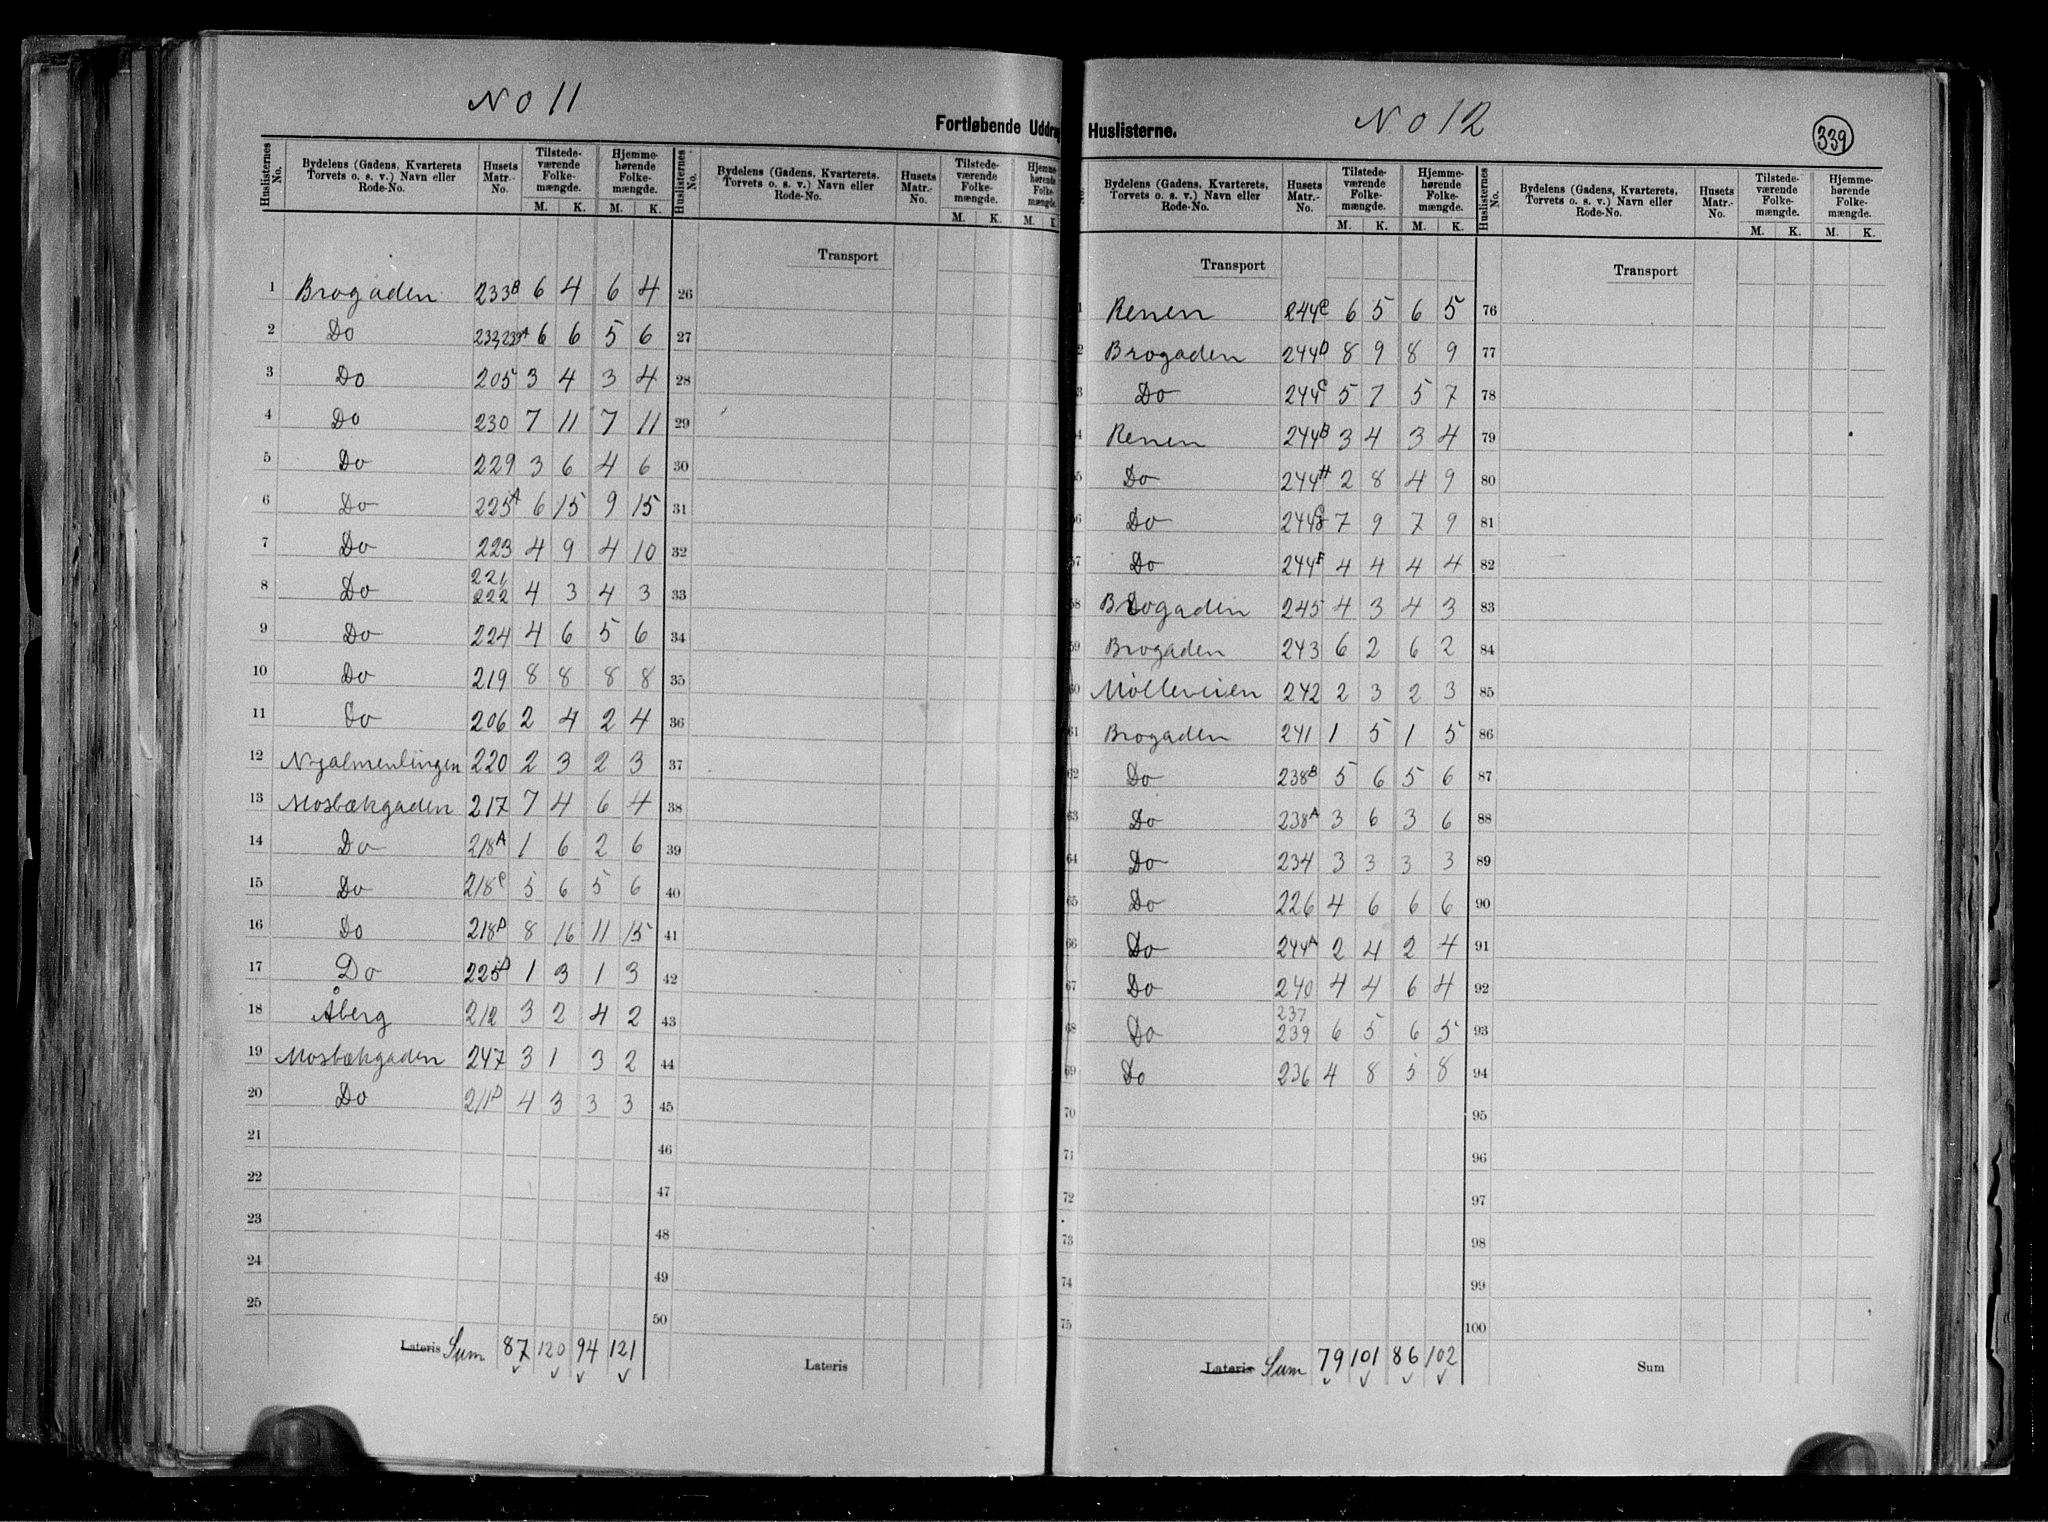 No 11
Fortløbende Uddrag
Huslisternes No. Bydelens (Gadens, Kvarterets Torvets o. s. v.) Navn eller Rode-No. Husets Matr.-No. Tilstedeværende Folkemængde. M. K. Hjemmehørende Folkemængde. M. K.
1 Brogaden 233B 6 4 6 4
2 Do 6 6 5 6
3 Do 205 3 4 3 4
4 Do 230 7 11 7 11
5 Do 229 3 6 4 6
6 Do 225A 6 15 9 15
7 Do 223 4 9 4 10
8 Do 221, 222 4 3 4 3
9 Do 224 4 6 5 6
10 Do 219 8 8 8 8
11 Do 206 2 4 2 4
12 220 2 3 2 3
13 Mosbækgaden 217 7 4 6 4
14 Do 218A 1 6 2 6
15 Do 218C 5 6 5 6
16 Do 218D 8 16 11 15
17 Do 225D 1 3 1 3
18 Åberg 212 3 2 4 2
19 Mosbækgaden 247 3 1 3 2
20 Do 211D 4 3 3 3
21
22
23
24
25
Lateris Sum 87 120 94 121
Huslisternes No. Bydelens (Gadens, Kvarterets, Torvets o. s. v.) Navn eller Rode-No. Husets Matr.-No. Tilstedeværende Folkemængde. M. K. Hjemmehørende Folkemængde. M. K.
Transport
26
27
28
29
30
31
32
33
34
35
36
37
38
39
40
41
42
43
44
45
46
47
48
49
50
Lateris
No 12
339
Huslisterne.
No. Bydelens (Gadens, Kvarterets, Torvets o. s. v.) Navn eller Rode-No. Husets Matr.-No. Tilstedeværende Folkemængde. M. K. Hjemmehørende Folkemængde. M. K.
Transport
1 Renen 244C 6 5 6 5
2 Brogaden 244D 8 9 8 9
3 Do 244C 5 7 5 7
4 Renen 244B 3 4 3 4
55 Do 244H 2 8 4 9
56 Do 244G 7 9 7 9
57 Do 244F 4 4 4 4
58 Brogaden 245 4 3 4 3
59 Brogaden 243 6 2 6 2
60 Mølleveien 242 2 3 2 3
61 Brogaden 241 1 5 1 5
62 Do 238B 5 6 5 6
63 Do 238A 3 6 3 6
64 Do 234 3 3 3 3
65 Do 226 4 6 6 6
66 Do 244A 2 4 2 4
67 Do 240 4 4 6 4
68 Do 237 239 6 5 6 5
69 Do 236 4 8 5 8
70
71
72
73
74
75
Lateris Sum 79 101 86 102
Huslisternes No. Bydelens (Gadens, Kvarterets, Torvets o. s. v.) Navn eller Rode-No. Husets Matr.-No. Tilstedeværende Folkemængde. M. K. Hjemmehørende Folkemængde. M. K.
Transport
76
77
78
79
80
81
82
83
84
85
86
87
88
89
90
91
92
93
94
95
96
97
98
99
100
Sum